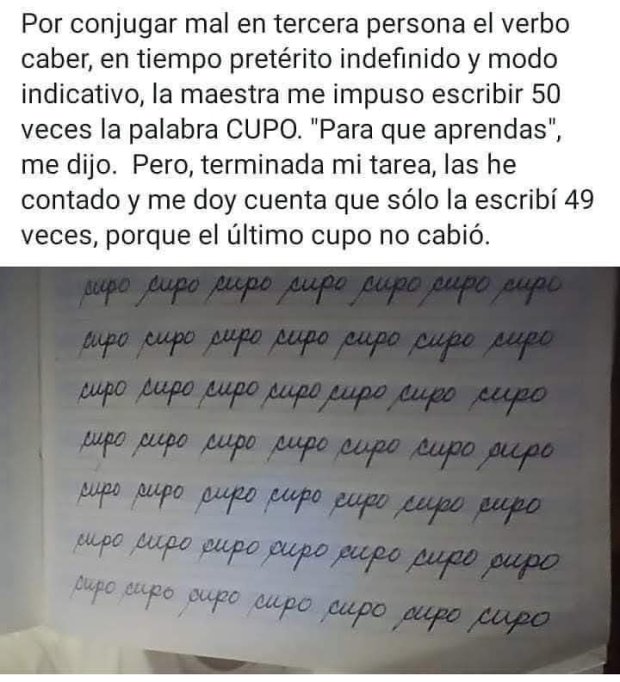 Por conjugar mal en tercera persona el verbo
caber, en tiempo pretérito indefinido y modo
indicativo, la maestra me impuso escribir 50
veces la palabra CUPO. "Para que aprendas",
me dijo. Pero, terminada mi tarea, las he
contado y me doy cuenta que sólo la escribí 49
veces, porque el último cupo no cabió.
cupo cupo cupo cupo cupo cupo cupo
cupo cupo cupo cupo cupo cupo cupo
cupo cupo cupo cupo cupo cupo cupo
cupo cupo cupo cupo cupo cupo cupo
cupo cupo cupo cupo cupo cupo cupo
cupo cupo cupo cupo cupo cupo cupo
cupo cupo cupo cupo cupo cupo cupo